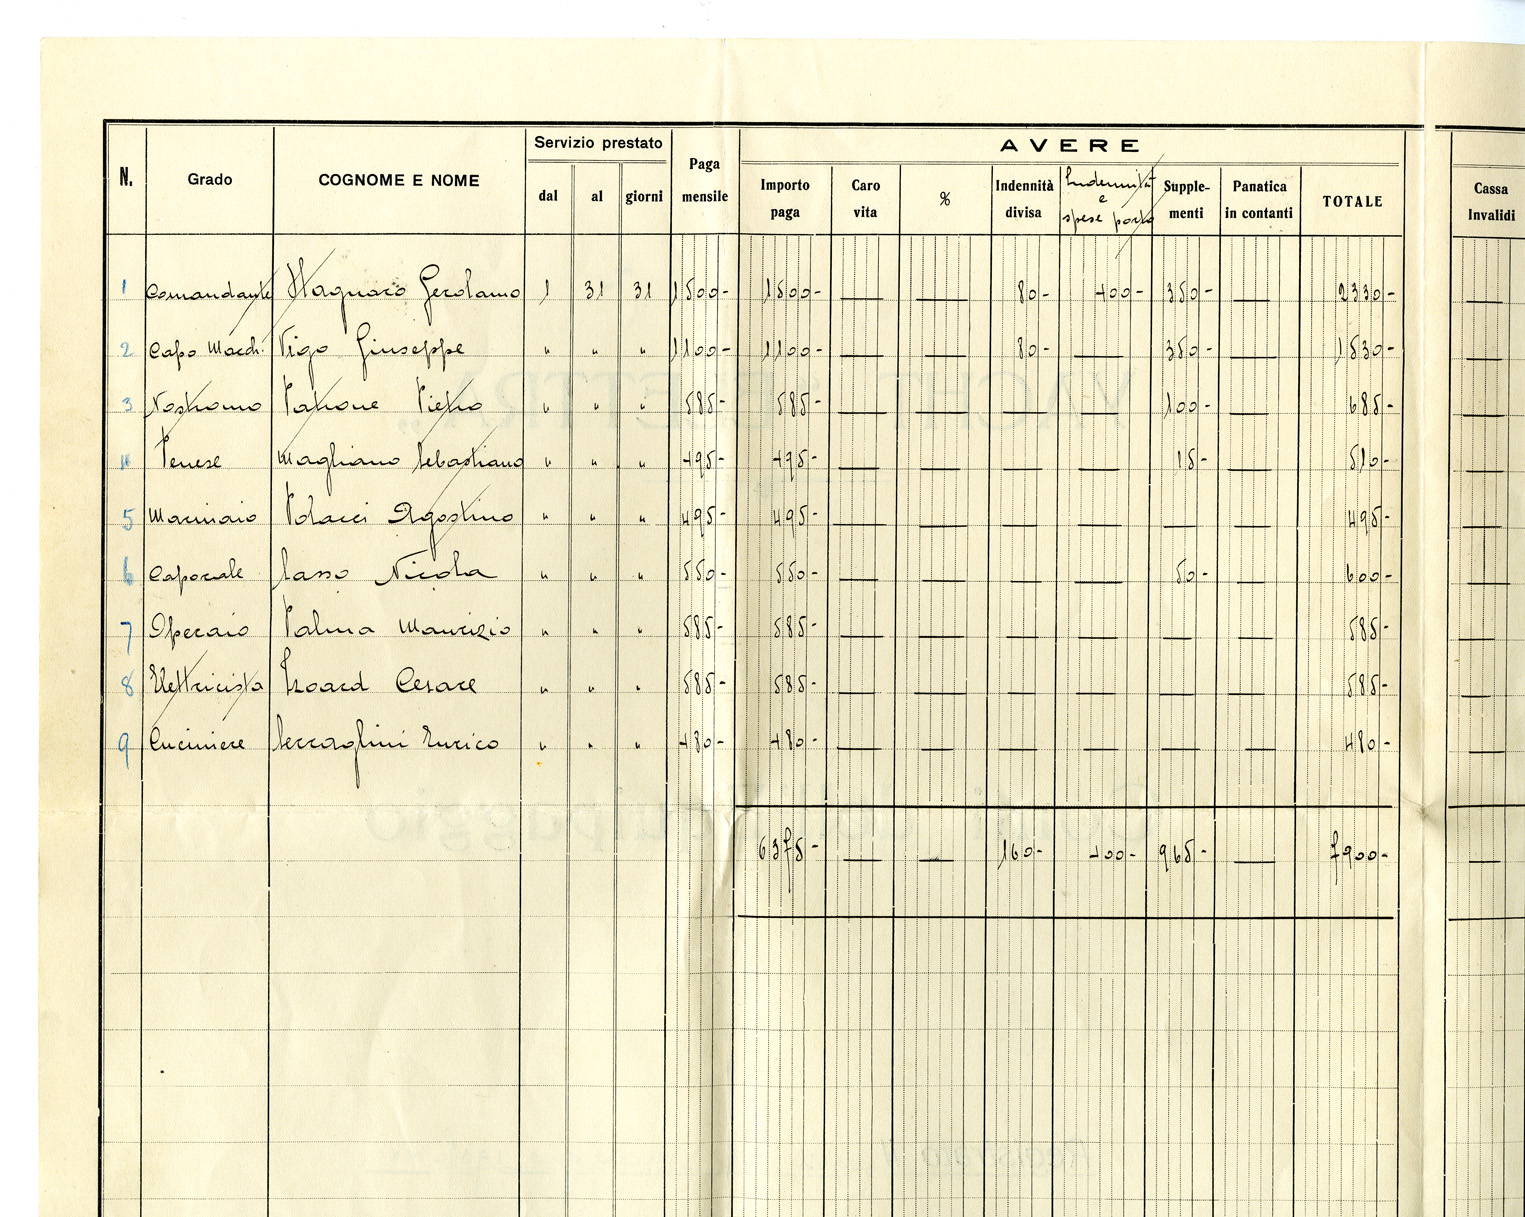 AVERE
N. Grado COGNOME E NOME Servizio prestato dal al giorni Paga mensile Importo paga Caro vita % Indennità divisa Indennità e spese porto Supplementi Panatica in contanti TOTALE Cassa Invalidi
1 Comandante Stagnaro Gerolamo 1 31 31 1500- 1500- — — 80- 400- 350- — 2330- —
2 Capo Macch. Vigo Giuseppe " " " 1100- 1100- — — 80- — 350- — 1530- —
3 Nostromo Patrone Pietro " " " 585- 585- — — — — 100- — 685- —
4 Penese Magliano Sebastiano " " " 495- 495- — — — — 15- — 510- —
5 Marinaio Polacci Agostino " " " 495- 495- — — — — — — 495- —
6 Caporale Sasso Nicola " " " 550- 550- — — — — 50- — 600- —
7 Operaio Palma Maurizio " " " 585- 585- — — — — — — 585- —
8 Elettricista Izoard Cesare " " " 585- 585- — — — — — — 585- —
9 Cuciniere Serraglini Enrico " " " 480- 480- — — — — — — 480- —
6375- — — 160- 400- 965- — 7900- —